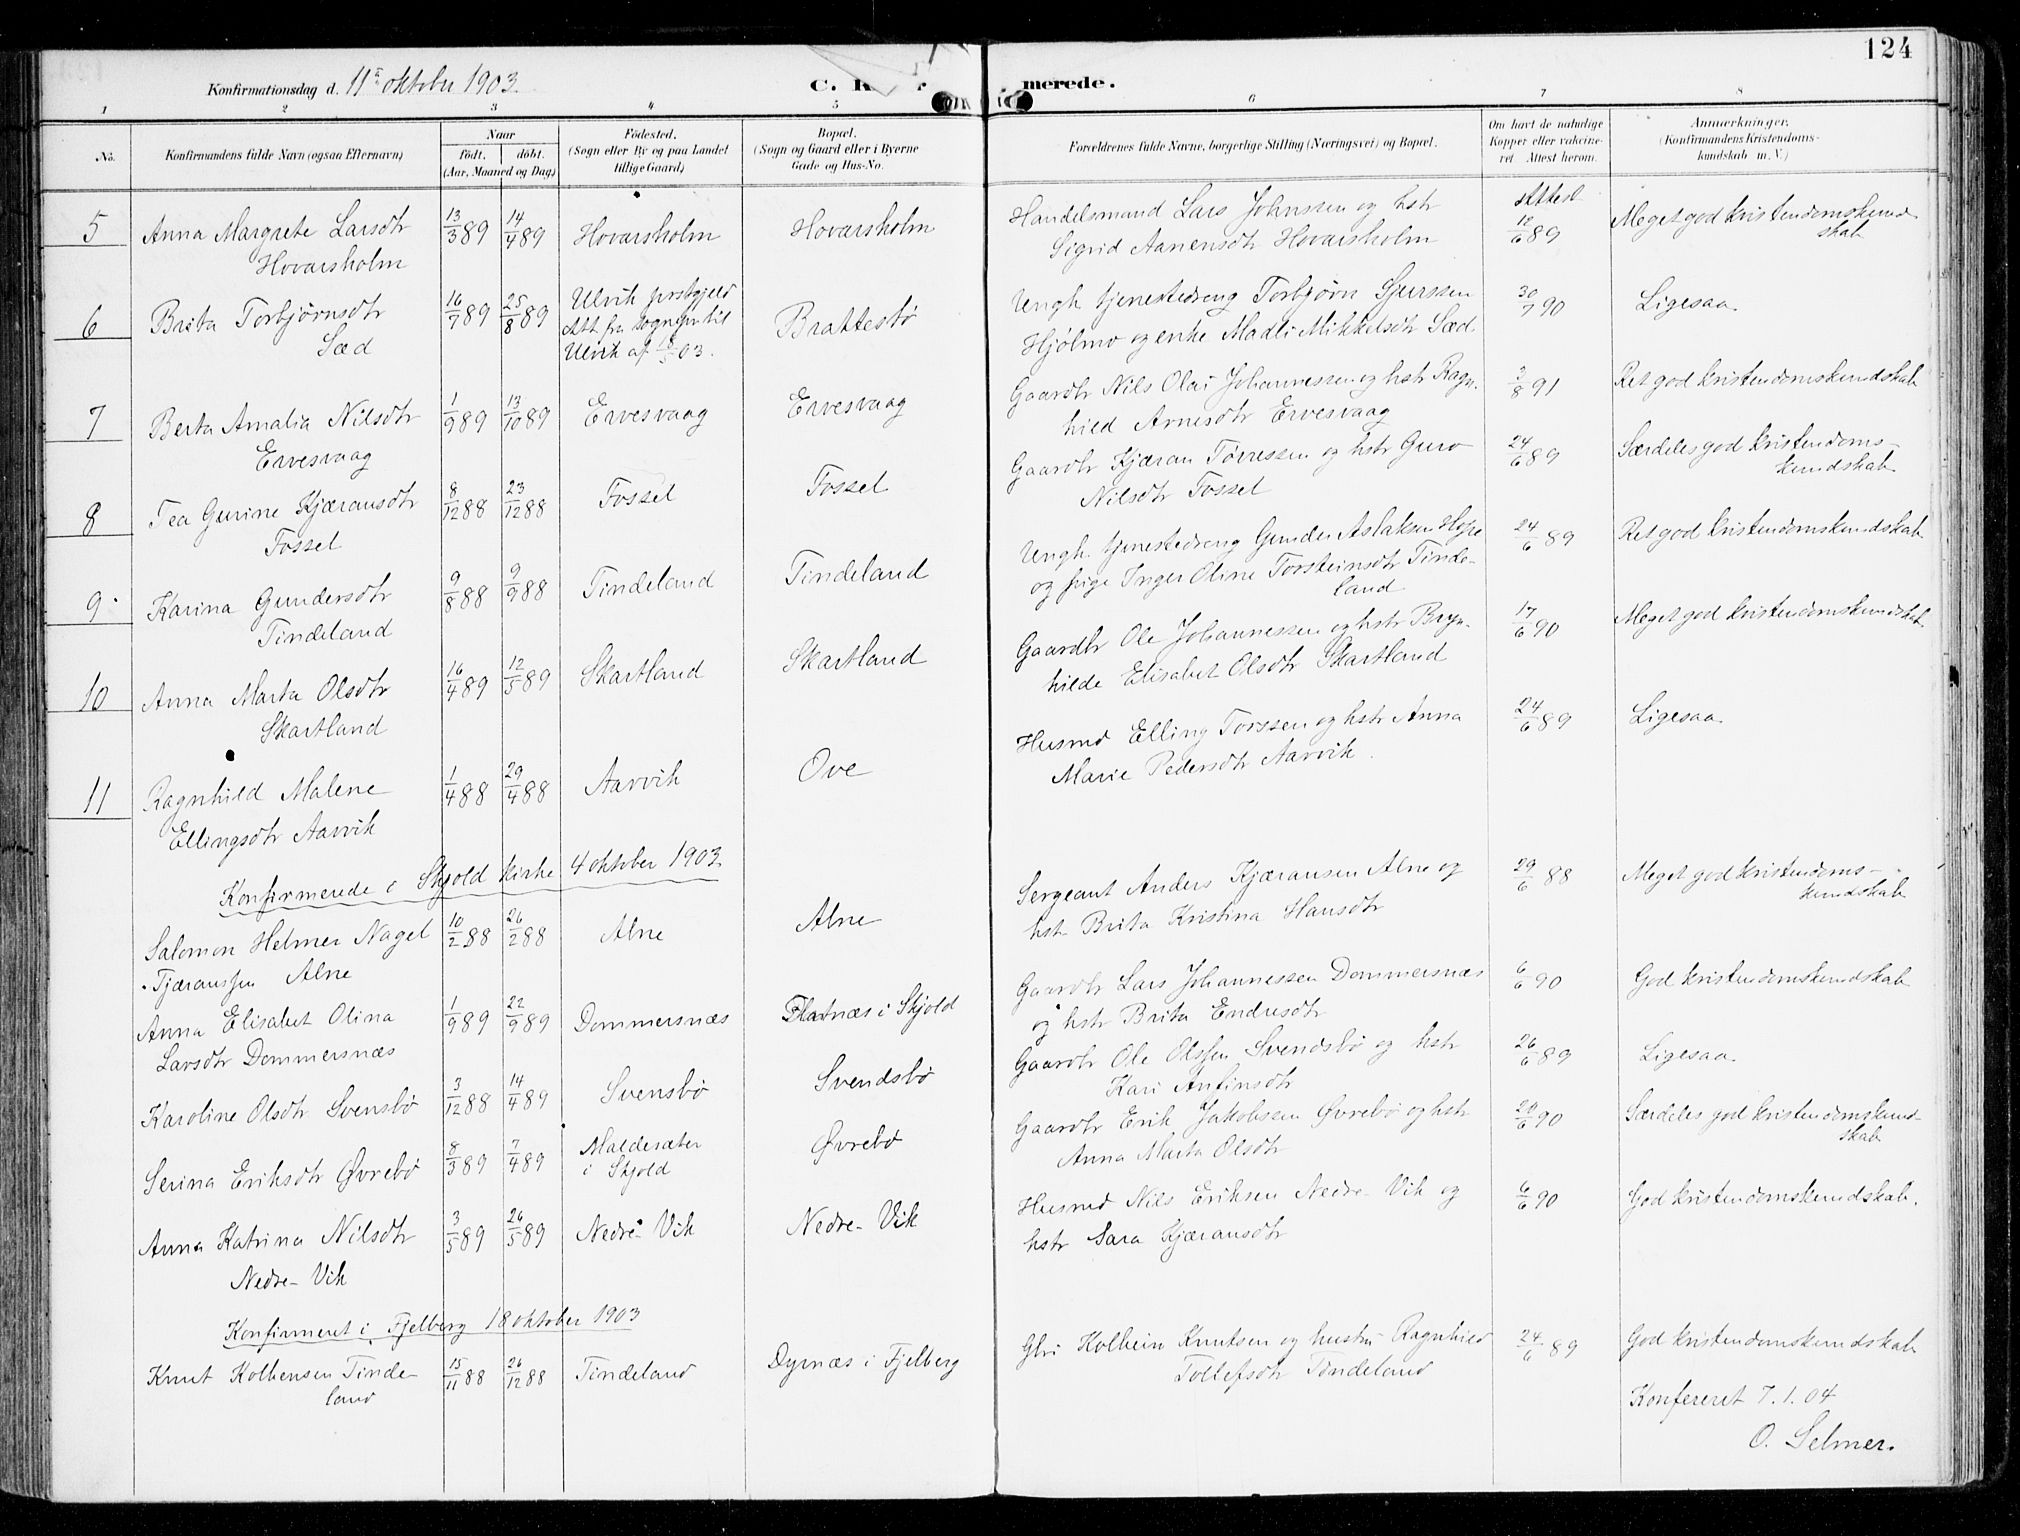 124
Konfirmationsdag d. 11te oktober 1903.
merede.
1 2 3 4 5 6 7 8
No.
Konfirmandens fulde Navn (ogsaa Efternavn)
Naar
födt. döbt.
(Aar, Maaned og Dag)
Födested.
(Sogn eller By og paa Landet
tillige Gaard)
Bopæl.
(Sogn og Gaard eller i Byerne
Gade og Hus-No.
Forældrenes fulde Navne, borgerlige Stilling (Næringsvei) og Bopæl.
Om havt de naturlige
Kopper eller vakcine-
ret Attest herom.
Anmærkninger.
(Konfirmandens Kristendoms-
kundskab m. V.)
5 Anna Margrete Larsdtr 13/3 89 14/4 89 Hovarsholm Hovarsholm
Hovarsholm
Handelsmand Lars Johnssen og hstr
Sigrid Aanensdtr Hovarsholm
Attest
12/6 89
Meget god kristendomskund
skab
6 Brita Torbjørnsdtr 16/7 89 25/8 89 Ulvik prestgjeld Brattesbø
Sæd
Att fra sognepr til
Ulvik af 18/5 03.
Ungk. tjenestedreng Torbjørn Sjurssen
Hjølmo og enke Madli Mikkelsdtr Sæd.
30/7 90 Ligesaa
7 Berta Amalia Nilsdtr 1/9 89 13/10 89 Ervesvaag Ervesvaag
Ervesvaag
Gaardbr Nils Olai Johannessen og hstr Ragn-
hild Arnesdtr Ervesvaag
3/8 91 Ret god kristendomskundskab
8 Tea Gurine Kjæransdtr 8/12 88 23/12 88 Fossel Fossel
Fossel
Gaardbr Kjæran Tørressen og hstr Guro
Nilsdtr Fossel
24/6 89 Særdeles god kristendoms-
kundskab
9 Karina Gundersdtr 9/8 88 9/9 88 Tindeland Tindeland
Tindeland
Ungk. tjenestedreng Gunder Aslaksen
og pige Inger Oline Torsteinsdtr Tinde-
land
24/6 89 Ret god kristendomskundskab
10 Anna Marta Olsdtr 16/4 89 12/5 89 Skartland Skartland
Skartland
Gaardbr Ole Johannessen og hstr Bryn-
hilde Elisabet Olsdtr Skartland
17/6 90 Meget god kristendomskundskab
11 Ragnhild Malene 1/4 88 29/4 88 Aarvik Ove
Ellingsdtr Aarvik
Husmd Elling Torssen og hstr Anna
Marie Pedersdtr Aarvik.
24/6 89 Ligesaa
Konfirmerede i Skjold kirke 4 oktober 1903
Salomon Helmer Nagel 10/2 88 26/2 88 Alne Alne
Tjæranssen Alne
Sergeant Anders Kjæransen Alne og
hstr Brita Kristina Hansdtr
29/6 88 Meget god kristendoms-
kundskab
Anna Elisabet Olina 1/9 89 22/9 89 Dommersnæs Flatnæs i Skjold
Larsdtr Dommersnæs
Gaardbr Lars Johannessen Dommersnæs
og hstr Brita Endresdtr
6/6 90 God kristendomskundskab
Karoline Olsdtr Svensbø 3/12 88 14/4 89 Svensbø Svendsbø
Gaardbr Ole Olssen Svendsbø og hstr
Kari Antinsdtr
26/6 89 Ligesaa
Serina Eriksdtr Øvrebø 8/3 89 7/4 89 Maldesæter Øvrebø
i Skjold
Gaardbr Erik Jakobssen Øvrebø og hstr
Anna Marta Olsdtr
20/6 90 Særdeles god kristendomskund-
skab
Anna Katrina Nilsdtr 3/5 89 26/5 89 Nedre-Vik Nedre-Vik
Nedre-Vik
Husmd Nils Eriksen Nedre-Vik og
hstr Sara Kjæransdtr
6/6 90 God kristendomskundskab.
Konfirmeret i Fjelberg 18 oktober 1903
Knut Kolbensen Tinde- 15/11 88 26/12 88 Tindeland Dyrnæs i Fjelberg
land
Gbr Kolbein Knutsen og hustru Ragnhild
Tollefsdtr Tindeland
24/6 89 God kristendomskundskab
Konfereret 7.1.04
O. Selmer.